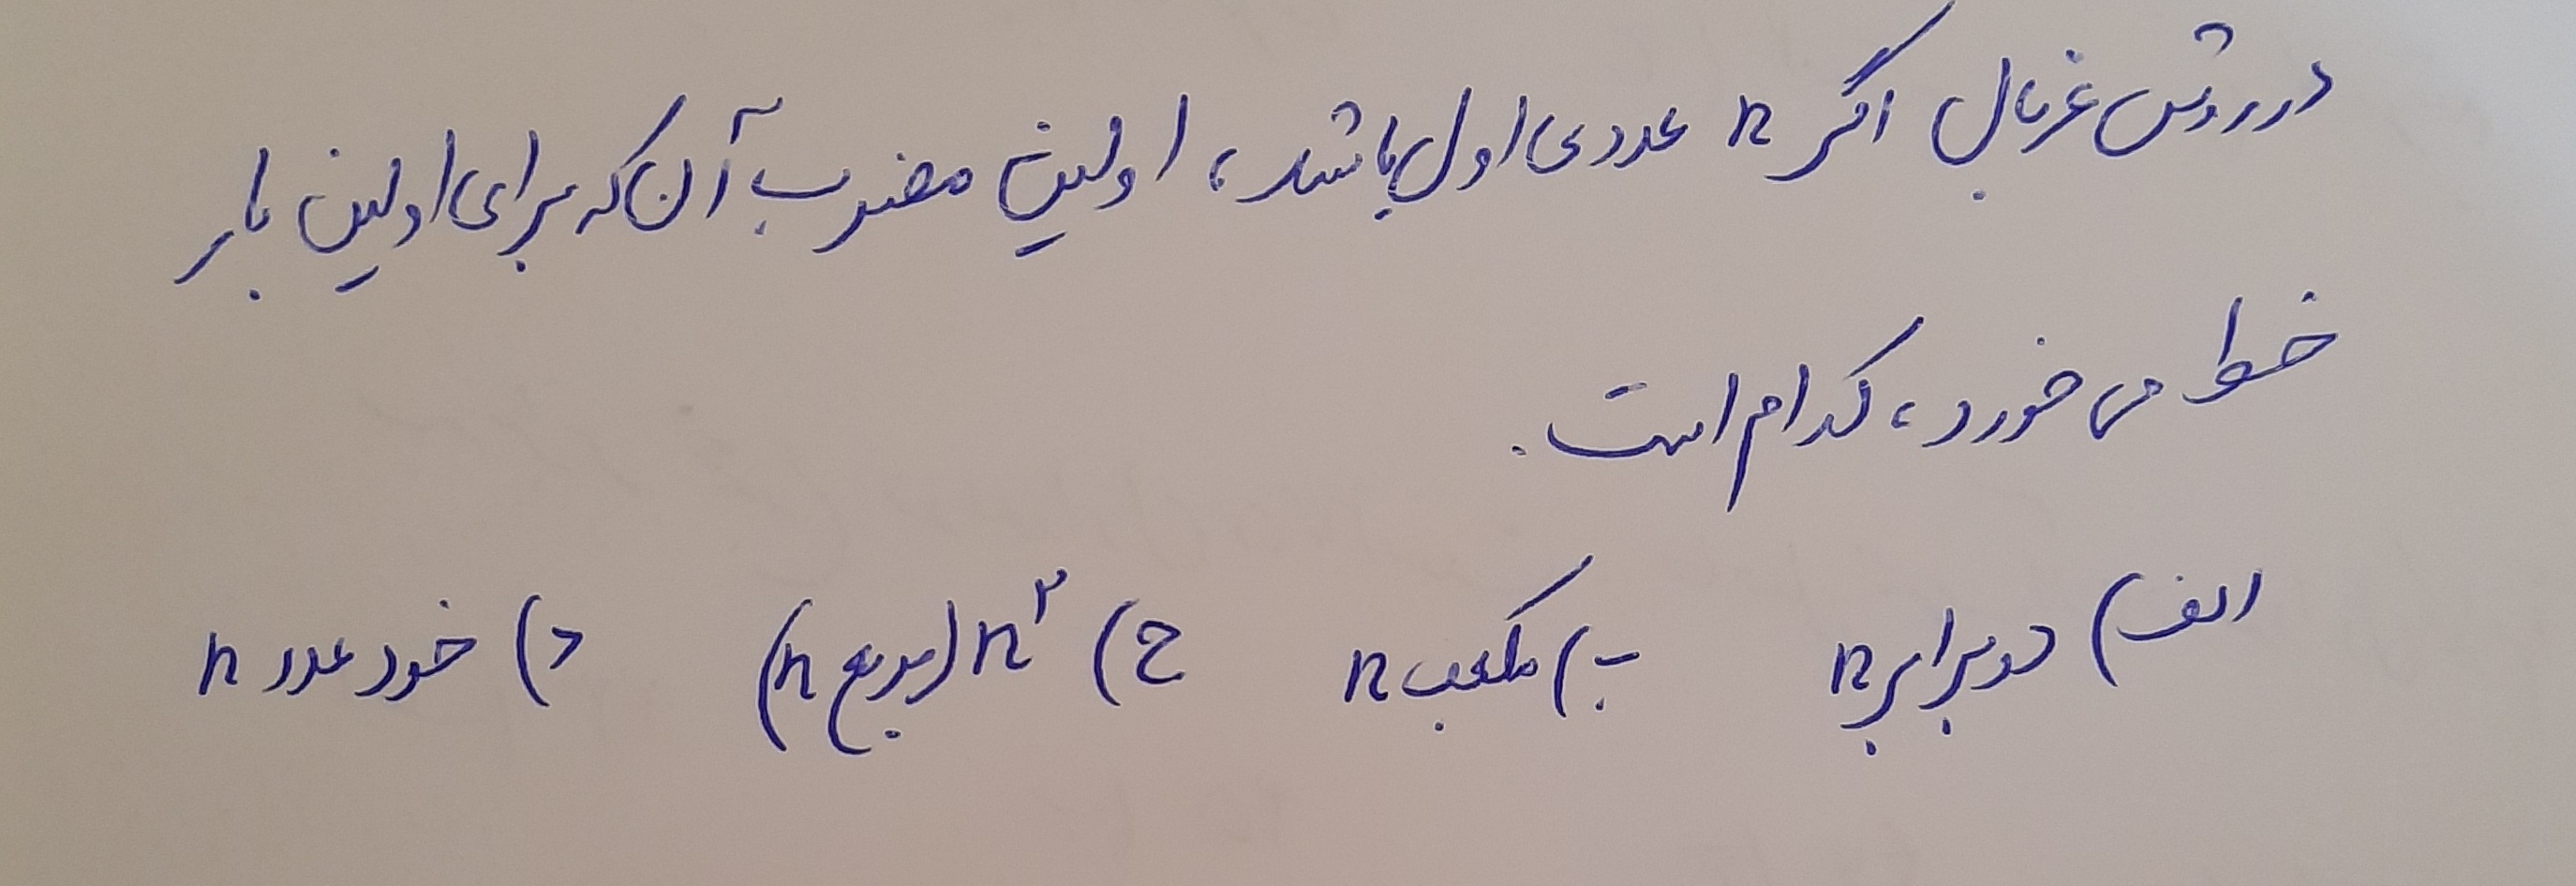 در روش غربال اگر n عددی اول باشد، اولین مضرب آن که برای اولین بار
خط می خورد، کدام است.
الف) دو برابر n ب) مکعب n ج) n² (مربع n) د) خود عدد n